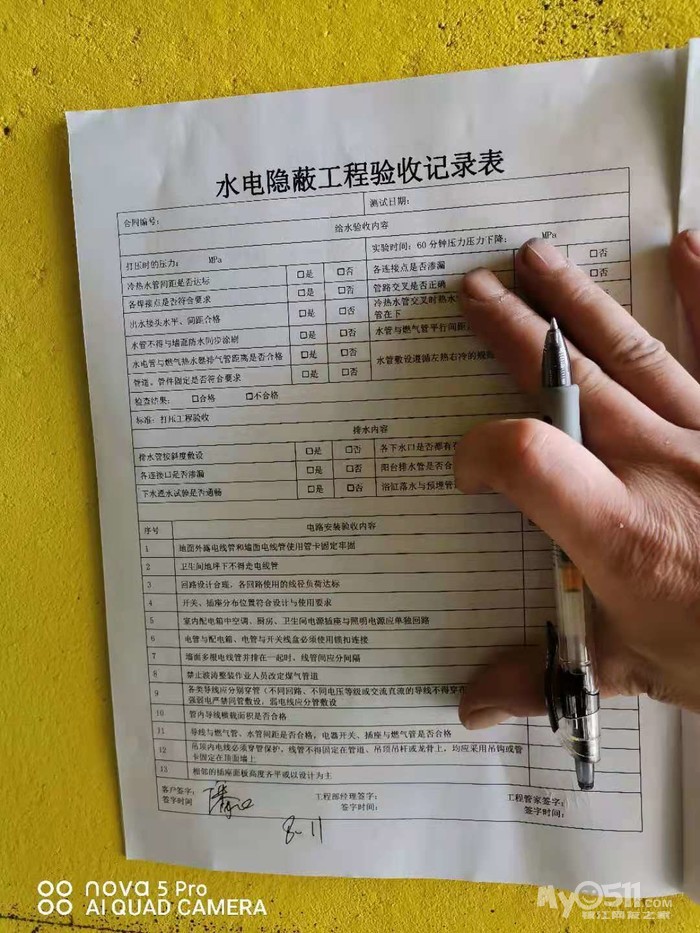 水电隐蔽工程验收记录表
合同编号: 测试日期:
给水验收内容
打压时的压力: MPa 实验时间: 60分钟压力压力下降: MPa
冷热水管间距是否达标 □是 □否 各连接点是否渗漏 □否
各焊接点是否符合要求 □是 □否 管路交叉是否正确 □否
出水接头水平、间距合格 □是 □否 冷热水管交叉时热水 管在下
水管不得与墙面防水同步涂刷 □是 □否 水管与燃气管平行间距
水电管与燃气热水器排气管距离是否合格 □是 □否 水管敷设遵循左热右冷的规
管道、管件固定是否符合要求 □是 □否
检查结果: □合格 □不合格
标准: 打压工程验收
排水内容
排水管按斜度敷设 □是 □否 各下水口是否都有
各连接口是否渗漏 □是 □否 阳台排水管是否合
下水透水试验是否通畅 □是 □否 浴缸落水与预埋管
序号 电路安装验收内容
1 地面外露电线管和墙面电线管使用管卡固定牢固
2 卫生间地坪下不得走电线管
3 回路设计合理,各回路使用的线径负荷达标
4 开关、插座分布位置符合设计与使用要求
5 室内配电箱中空调、厨房、卫生间电源插座与照明电源应单独回路
6 电管与配电箱、电管与开关线盒必须使用锁扣连接
7 墙面多根电线管并排在一起时,线管间应分间隔
8 禁止波涛整装作业人员改定煤气管道
9 各类导线应分别穿管(不同回路、不同电压等级或交流直流的导线不得穿
强弱电严禁同管敷设,弱电线应分管敷设
10 管内导线横截面积是否合格
11 导线与燃气管、水管间距是否合格,电器开关、插座与燃气管是否合格
12 吊顶内电线必须穿管保护,线管不得固定在管道、吊顶吊杆或龙骨上,均应采用吊钩或管
卡固定在顶面墙上
13 相邻的插座面板高度各平或以设计为主
客户签字: 工程部经理签字: 工程管家签字:
签字时间 签字时间: 签字时间:
8.11
nova 5 Pro
AI QUAD CAMERA
My0511.COM
镇江网友之家